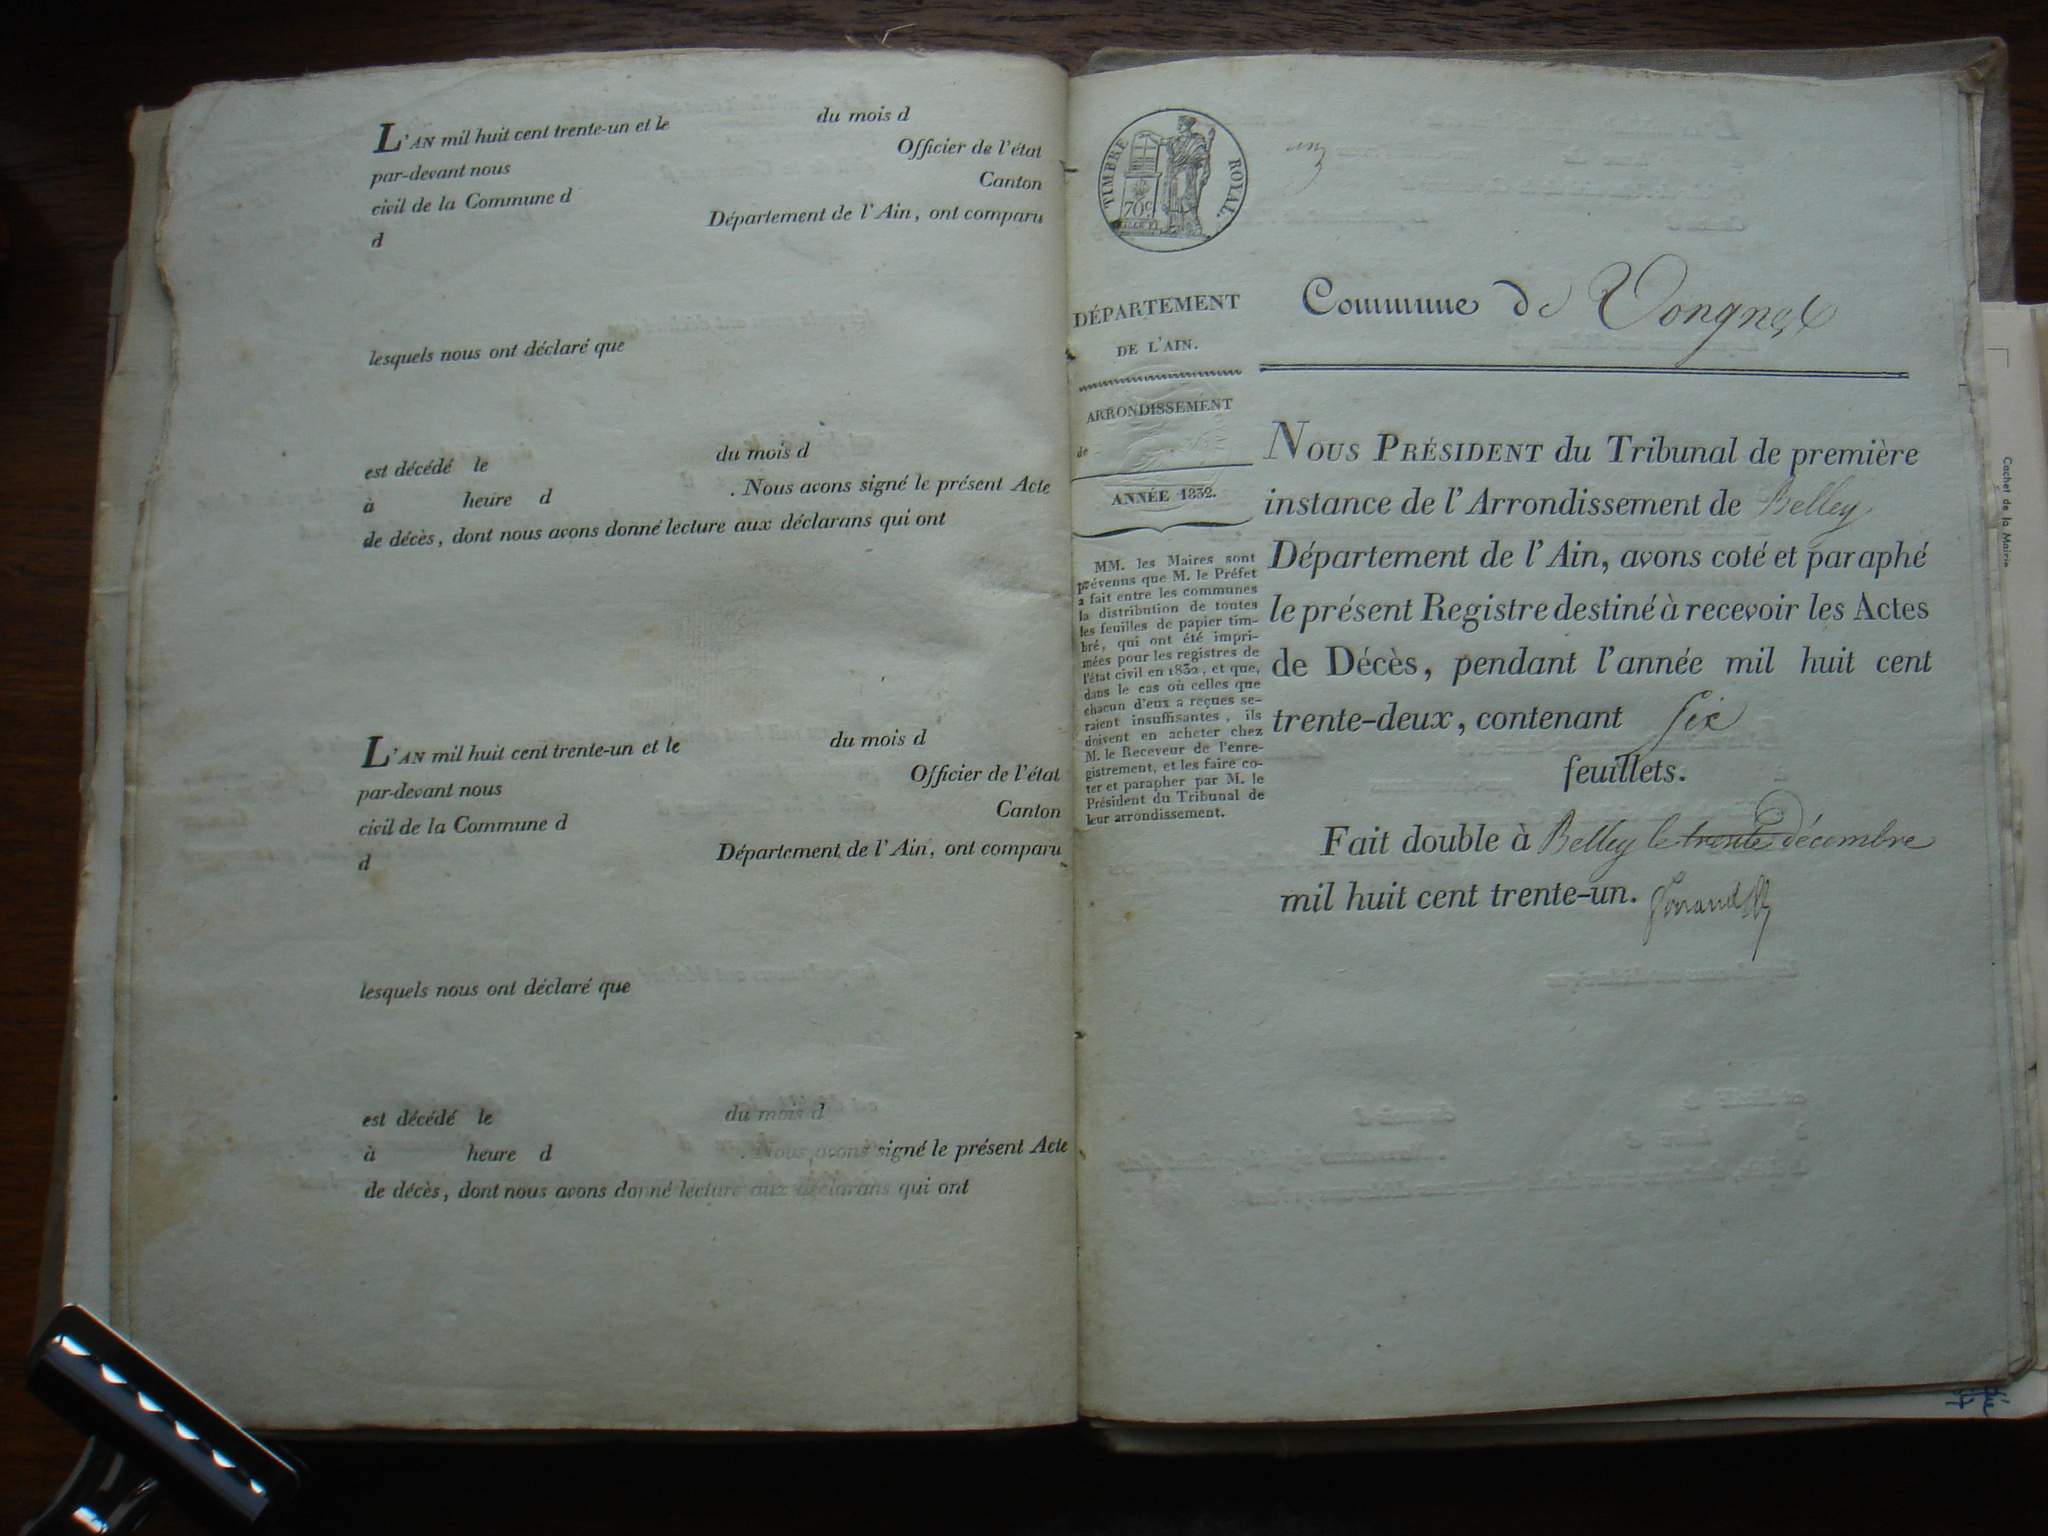 L'AN mil huit cent trente-un et le du mois d
par-devant nous Officier de l'état
civil de la Commune d Canton
d Département de l'Ain, ont comparu
lesquels nous ont déclaré que
est décédé le du mois d
à heure d . Nous avons signé le présent Acte
de décès, dont nous avons donné lecture aux déclarans qui ont
L'AN mil huit cent trente-un et le du mois d
par-devant nous Officier de l'état
civil de la Commune d Canton
d Département de l'Ain, ont comparu
lesquels nous ont déclaré que
est décédé le du mois d
à heure d . Nous avons signé le présent Acte
de décès, dont nous avons donné lecture aux déclarans qui ont
TIMBRE ROYAL.
70c
DÉPARTEMENT
DE L'AIN.
ARRONDISSEMENT
de
ANNÉE 1832.
MM. les Maires sont
prévenus que M. le Préfet
a fait entre les communes
la distribution de toutes
les feuilles de papier tim-
bré, qui ont été impri-
mées pour les registres de
l'état civil en 1832, et que,
dans le cas où celles que
chacun d'eux a reçues se-
raient insuffisantes, ils
doivent en acheter chez
M. le Receveur de l'enre-
gistrement, et les faire co-
ter et parapher par M. le
Président du Tribunal de
leur arrondissement.
Commune de Vongnes
NOUS PRÉSIDENT du Tribunal de première
instance de l'Arrondissement de Belley
Département de l'Ain, avons coté et paraphé
le présent Registre destiné à recevoir les Actes
de Décès, pendant l'année mil huit cent
trente-deux, contenant six
feuillets.
Fait double à Belley le trente décembre
mil huit cent trente-un.
Cachet de la Mairie